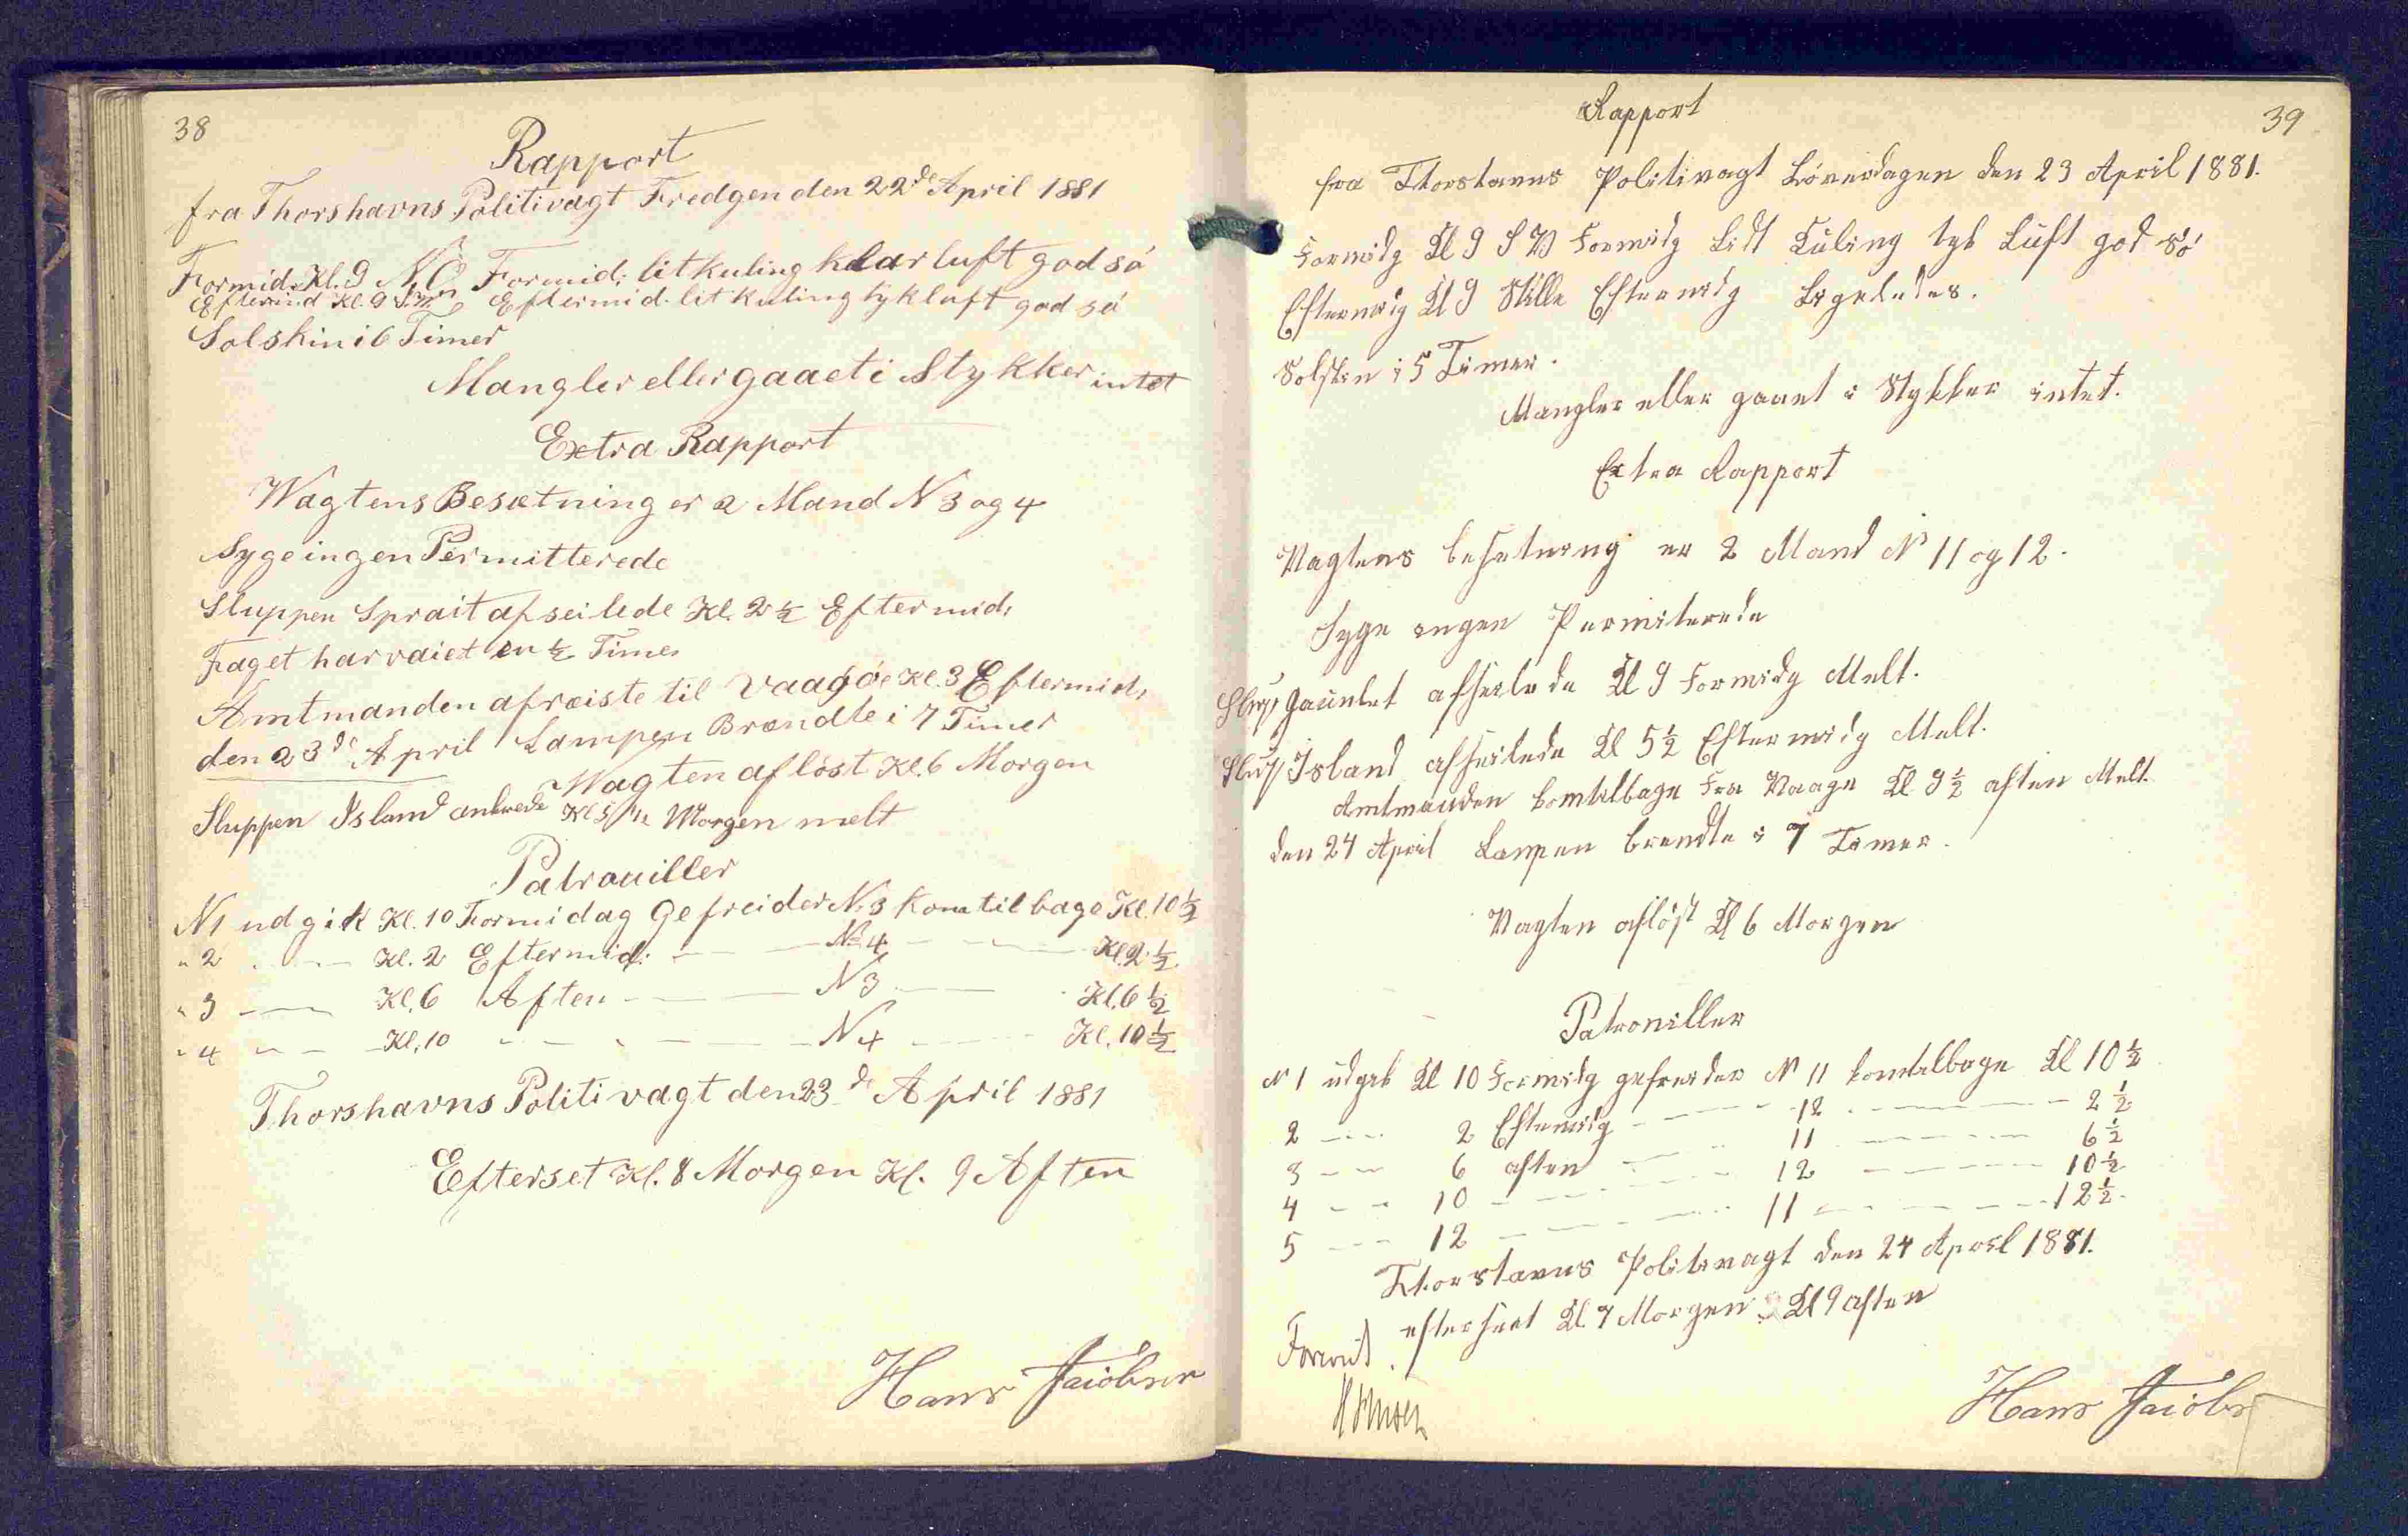 38
Rapport
fra Thorshavns Politivagt Fredgen den 22de April 1881
Formid. Kl. 9 NO Formid: lit kuling klar luft god sö
Eftermid Kl. 9 Eftermid. lit kuling tyk luft god sö
Solskin i 6 Timer
Mangler eller gaaet i Stykker intet
Extra Rapport
Wagtens Besætning er 2 Mand N 3 og 4
Syge ingen Permitterede
Sluppen Sprait afseilede Kl. 2 1/2 Eftermid:
Flaget har vaiet en 1/2 Time
Amtmanden afræiste til Vaagöe Kl. 3 Eftermid,
den 23de April Lampen Brændte i 7 Timer
Wagten aflöst Kl. 6 Morgen
Sluppen Island ankrede Kl 5 1/2 Morgen melt
Patrouiller
N 1 udgik Kl. 10 Formidag Gefreider N. 3 kom tilbage Kl. 10 1/2
" 2 — Kl. 2 Eftermid: — No 4 — Kl. 2 1/2
" 3 — Kl. 6 Aften — N 3 — Kl. 6 1/2
" 4 — Kl. 10 — N 4 — Kl. 10 1/2
Thorshavns Politivagt den 23de April 1881
Efterset Kl. 8 Morgen Kl. 9 Aften
Hans Jaiobsen
39
Rapport
fra Thorshavns Politivagt Löverdagen den 23 April 1881.
Formidg Kl 9 S V Formidg Lidt Kuling tyk Luft god Sö
Eftermidg Kl 9 Stille Eftermidg Ligeledes.
Solskin i 5 Timer.
Mangler eller gaaet i Stykker intet.
Extra Rapport
Vagtens besetning er 2 Mand No 11 og 12.
Syge ingen Permiterede
Slup Gauntlet afseilede Kl 9 Formidg Melt.
Slup Island afseilede Kl 5 1/2 Eftermidg Melt.
Amtmanden komtilbage Fra Vaage Kl. 9 1/2 aften Melt
den 24 April Lampen brendte i 7 Timer.
Vagten aflöst Kl 6 Morgen
Patroniller
N 1 udgik Kl 10 Formidg gefreider N 11 komtilbage Kl 10 1/2
2 — 2 Eftermidg — 12 — 2 1/2
3 — 6 aften — 11 — 6 1/2
4 — 10 — 12 — 10 1/2
5 — 12 — 11 — 12 1/2
Thorshavns Politivagt den 24 April 1881.
efterseet Kl. 7 Morgen Kl 9 aften
Hans Jaiobs